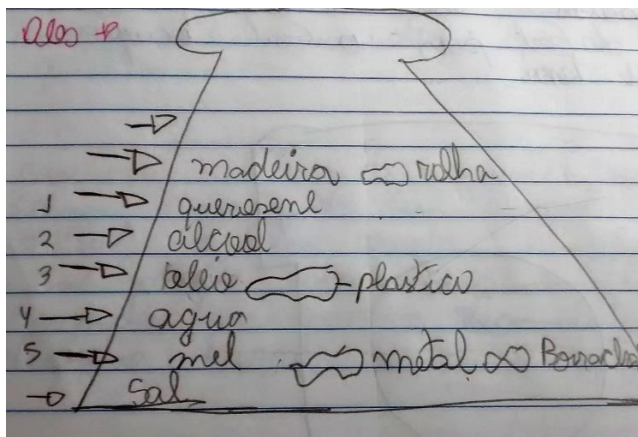 madeira rolha
1 querosene
2 álcool
3 oleio plastico
4 agua
5 mel metal Borracha
Sal